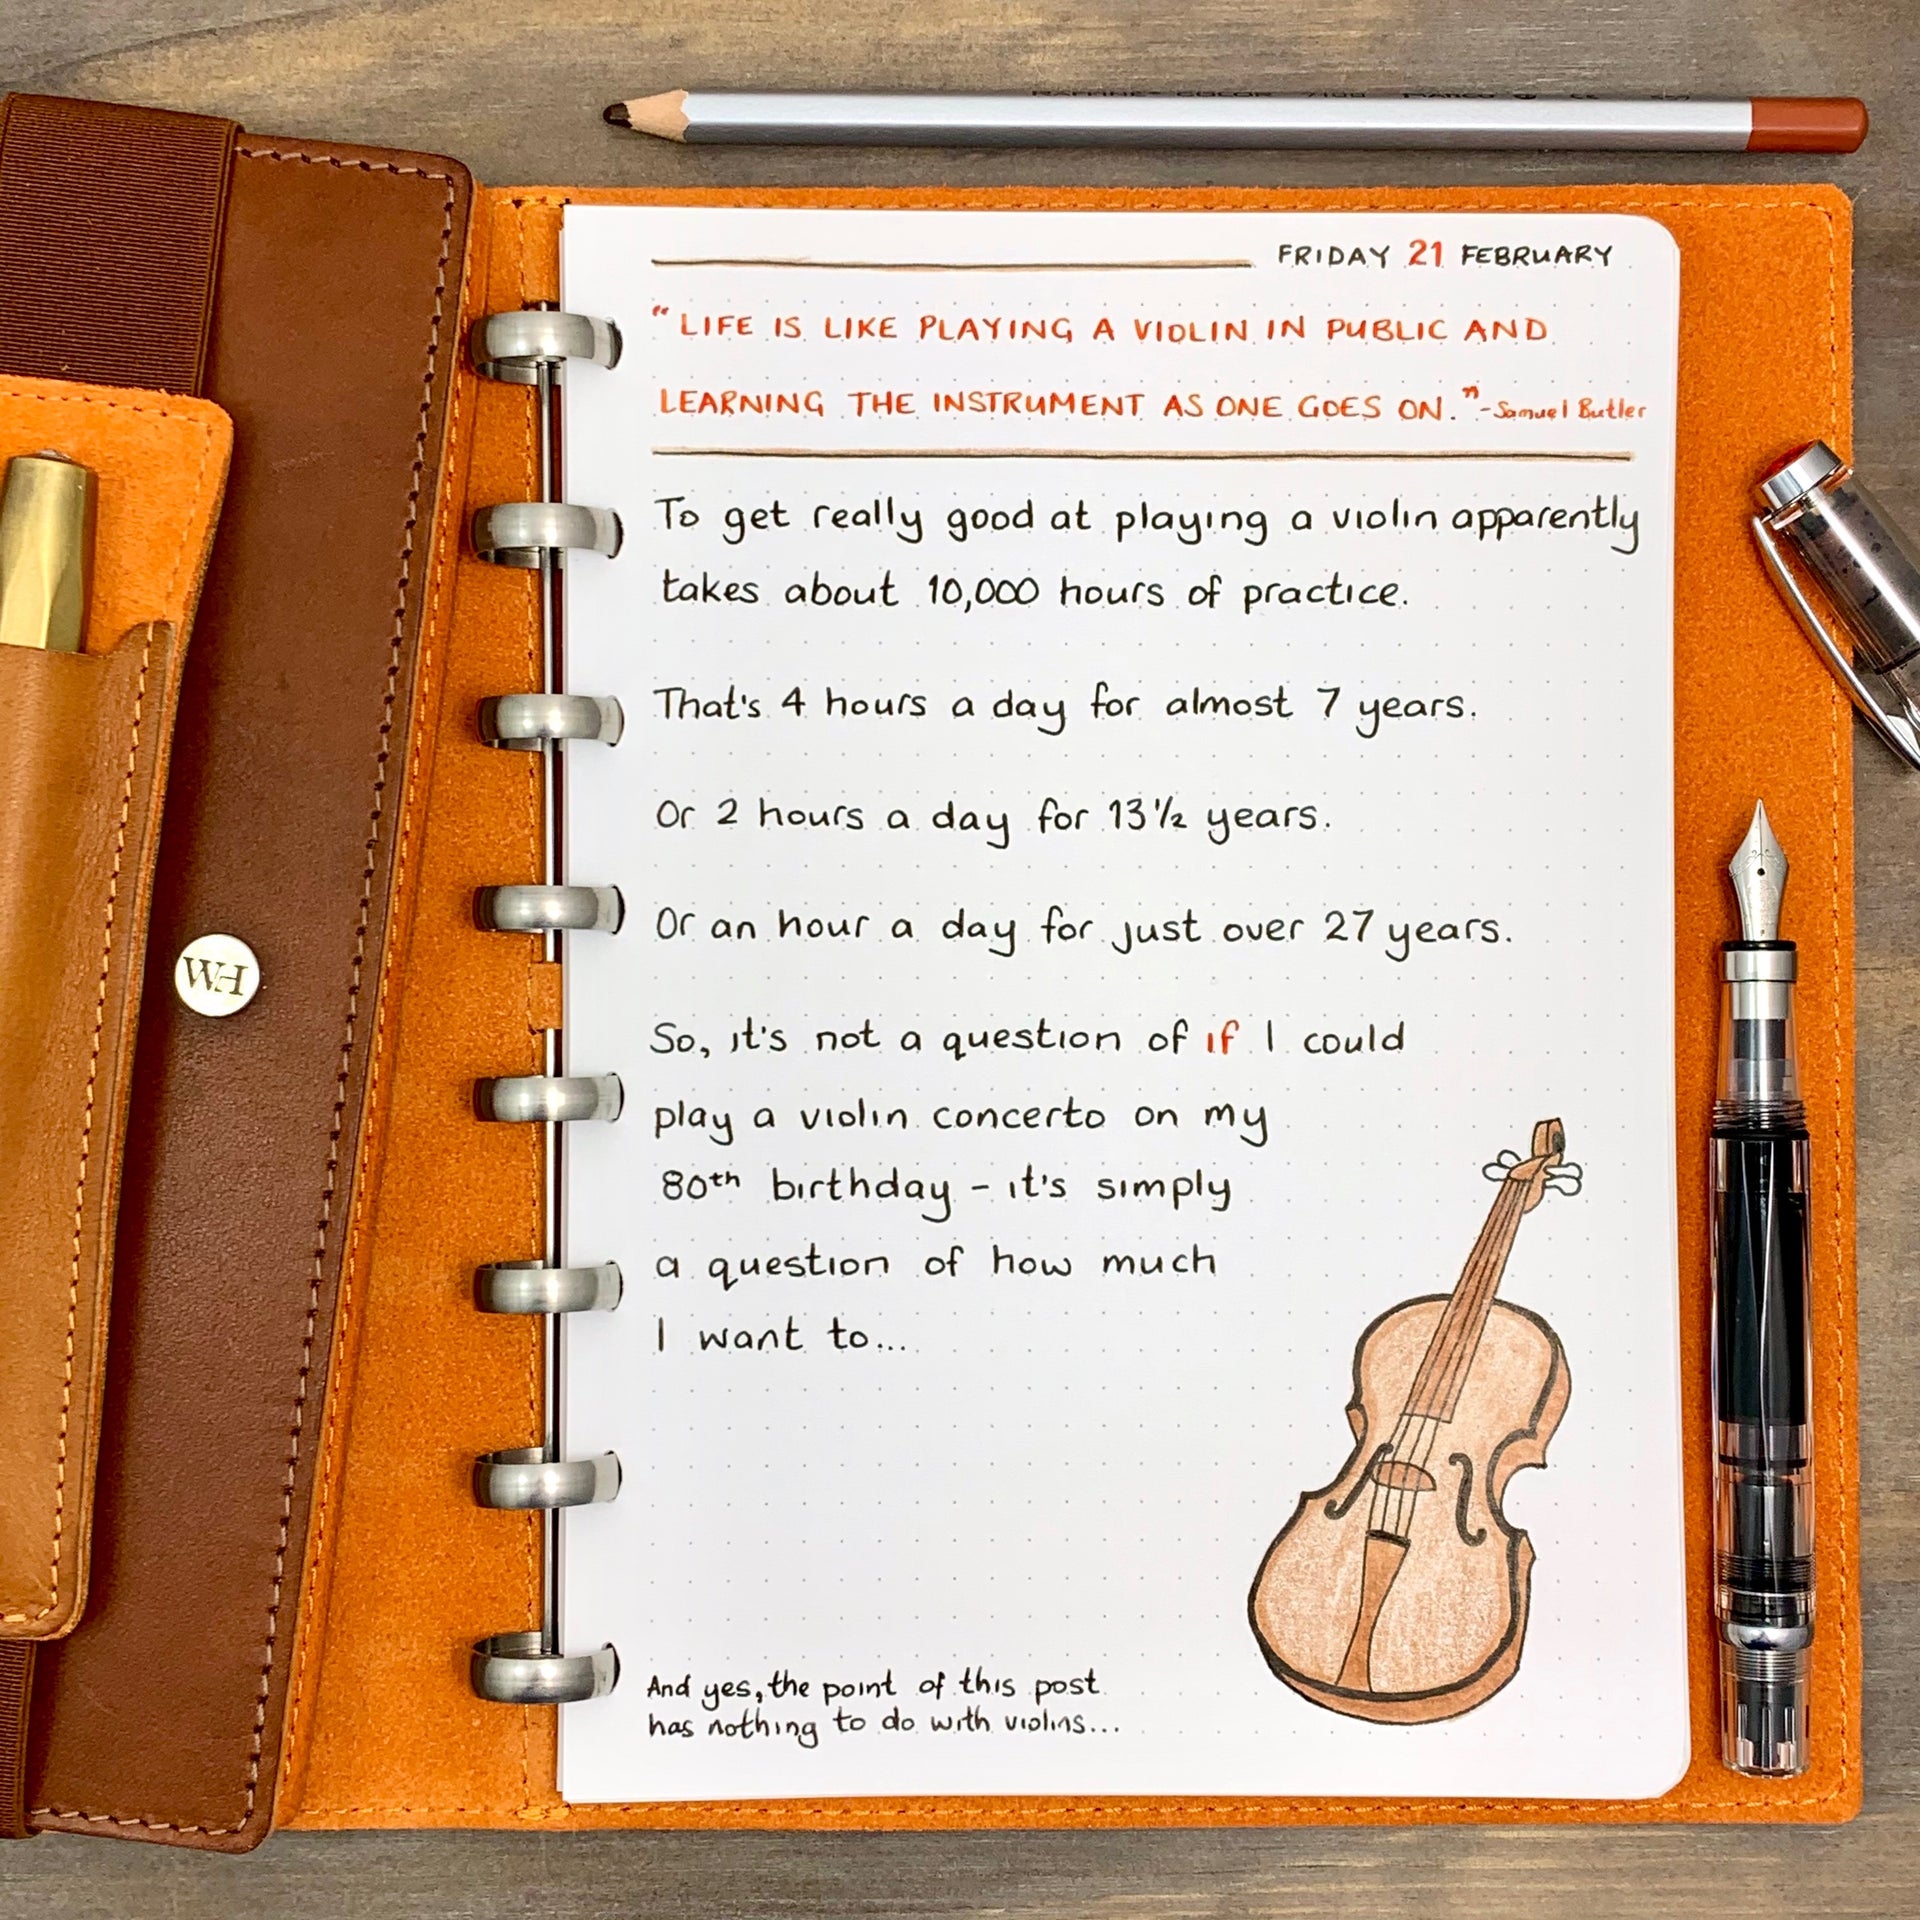 FRIDAY 21 FEBRUARY
"LIFE IS LIKE PLAYING A VIOLIN IN PUBLIC AND
LEARNING THE INSTRUMENT AS ONE GOES ON." - Samuel Butler
To get really good at playing a violin apparently
takes about 10,000 hours of practice.
That's 4 hours a day for almost 7 years.
Or 2 hours a day for 13½ years.
Or an hour a day for just over 27 years.
So, it's not a question of if I could
play a violin concerto on my
80th birthday - it's simply
a question of how much
I want to...
And yes, the point of this post
has nothing to do with violins...
WH